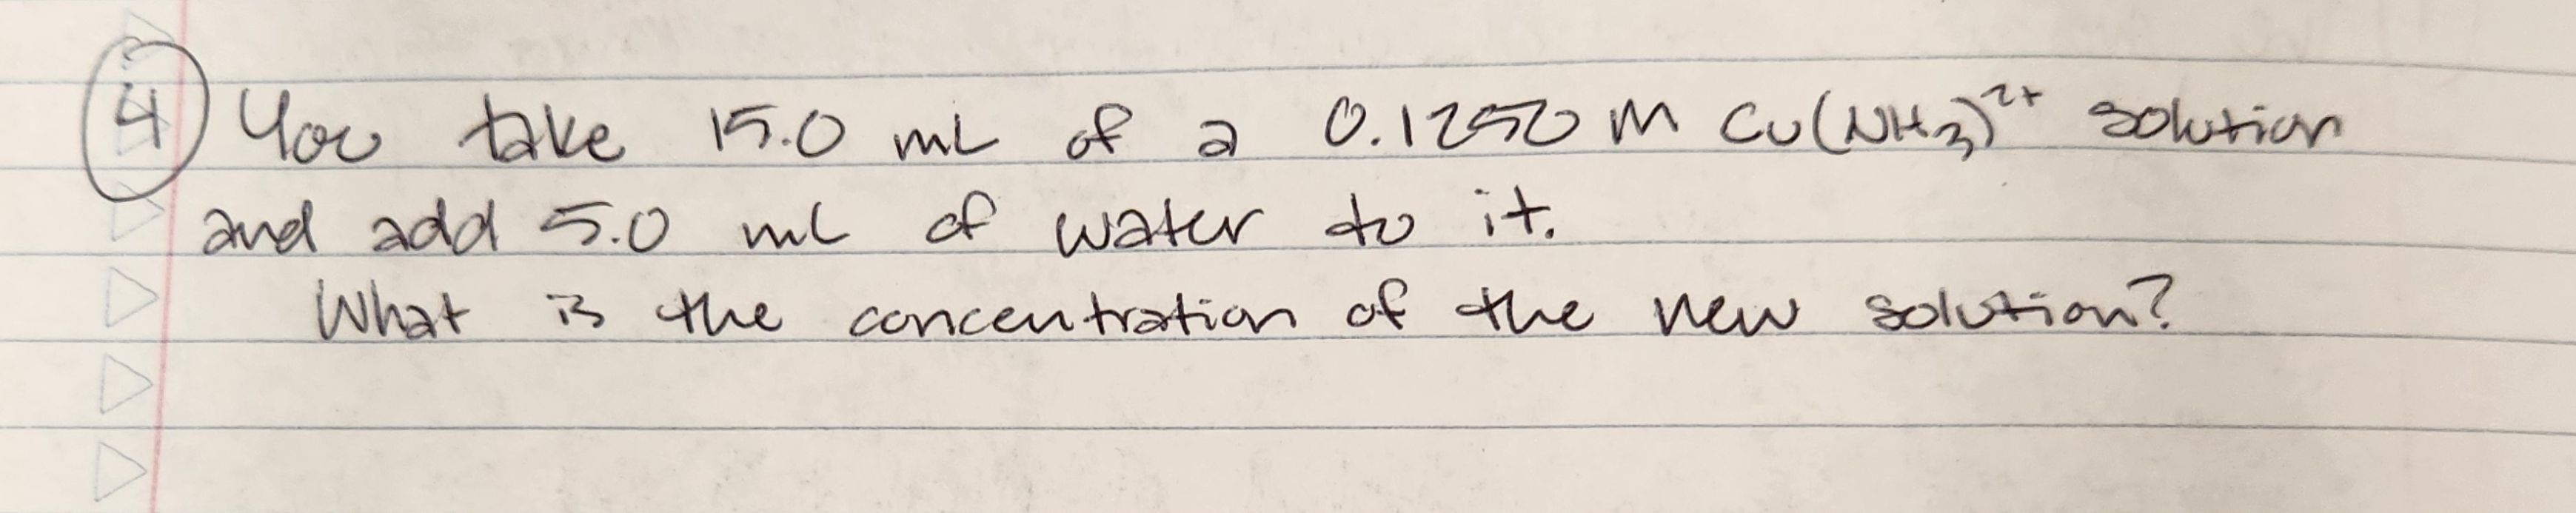 4 You take 15.0 mL of a 0.1250 M Cu(NH₃)²⁺ solution
and add 5.0 mL of water to it.
What is the concentration of the new solution?